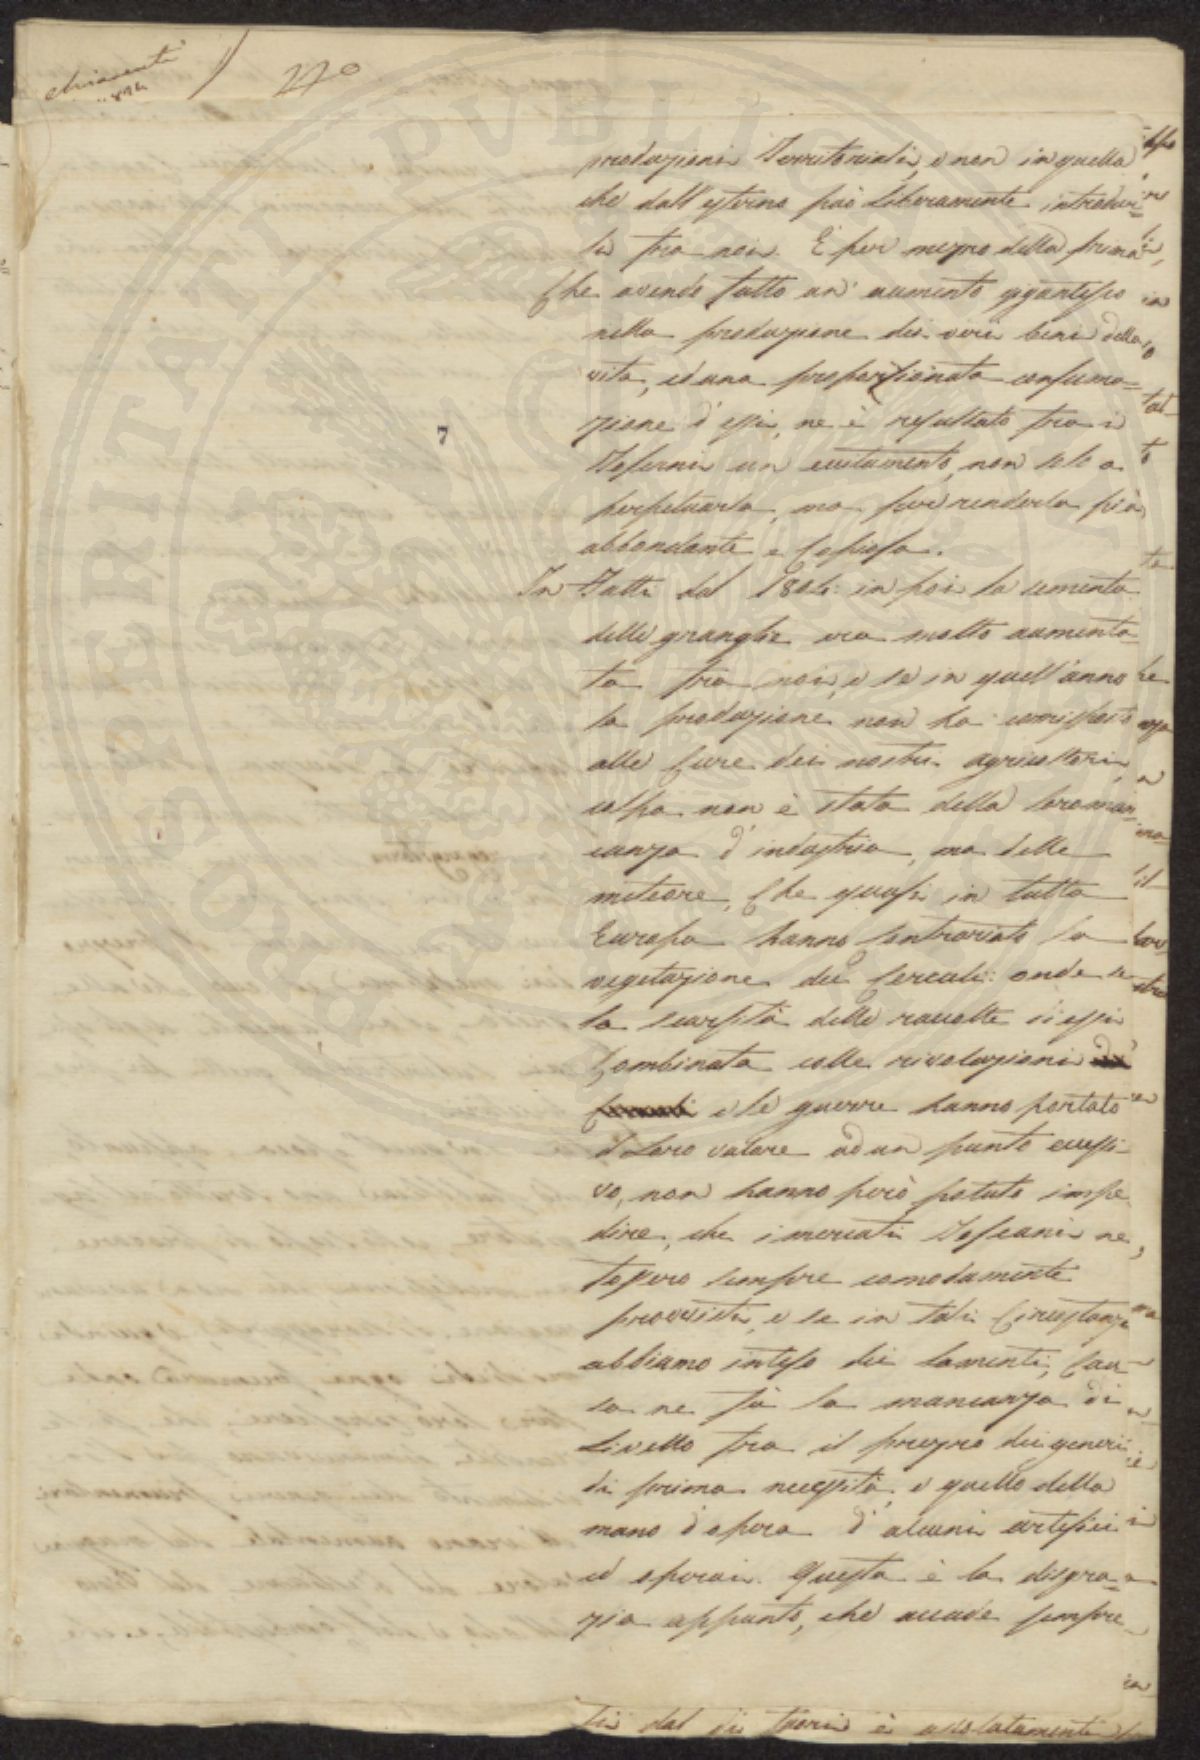 Chiarenti
220
produzioni Territoriali, e non in quella
che dall'esterno può Liberamente introdur=
si tra noi. E per mezzo della prima,
Che avendo fatto un' aumento gigantesco
nella produzione dei veri beni della
vita, ed una proporzionata consuma=
zione d'essi, ne è resultato tra i
Toscani un eccitamento, non solo a
perpetuarla, ma pur renderla più
abbondante e Copiosa.
In Fatti dal 1804: in poi la sementa
delle granaglie era molto aumenta=
ta tra noi, e se in quell'anno
la produzione non ha corrisposto
alle Cure dei nostri agricoltori,
colpa non è stata della loro man=
canza d'industria, ma delle
meteore, Che quasi in tutta
Europa hanno Contrariato la
vegetazione dei Cereali: onde se
la scarsità delle raccolte d'essi
Combinata colle rivoluzioni
e le guerre hanno portato
il Loro valore ad un punto eccessi=
vo, non hanno però potuto impe
dire, che i mercati Toscani ne
fossero sempre comodamente
provvisti, e se in tali Circostanze
abbiamo inteso dei lamenti, Cau=
sa ne fù la mancanza di
Livello tra il prezzo dei generi
di prima necessità, e quello della
mano d'opera d'alcuni artefici
ed operai. Questa è la disgra=
zia appunto, che accade sempre
ti dal di fuori è assolutamente
7
PUBLICAE
PROSPERITATI